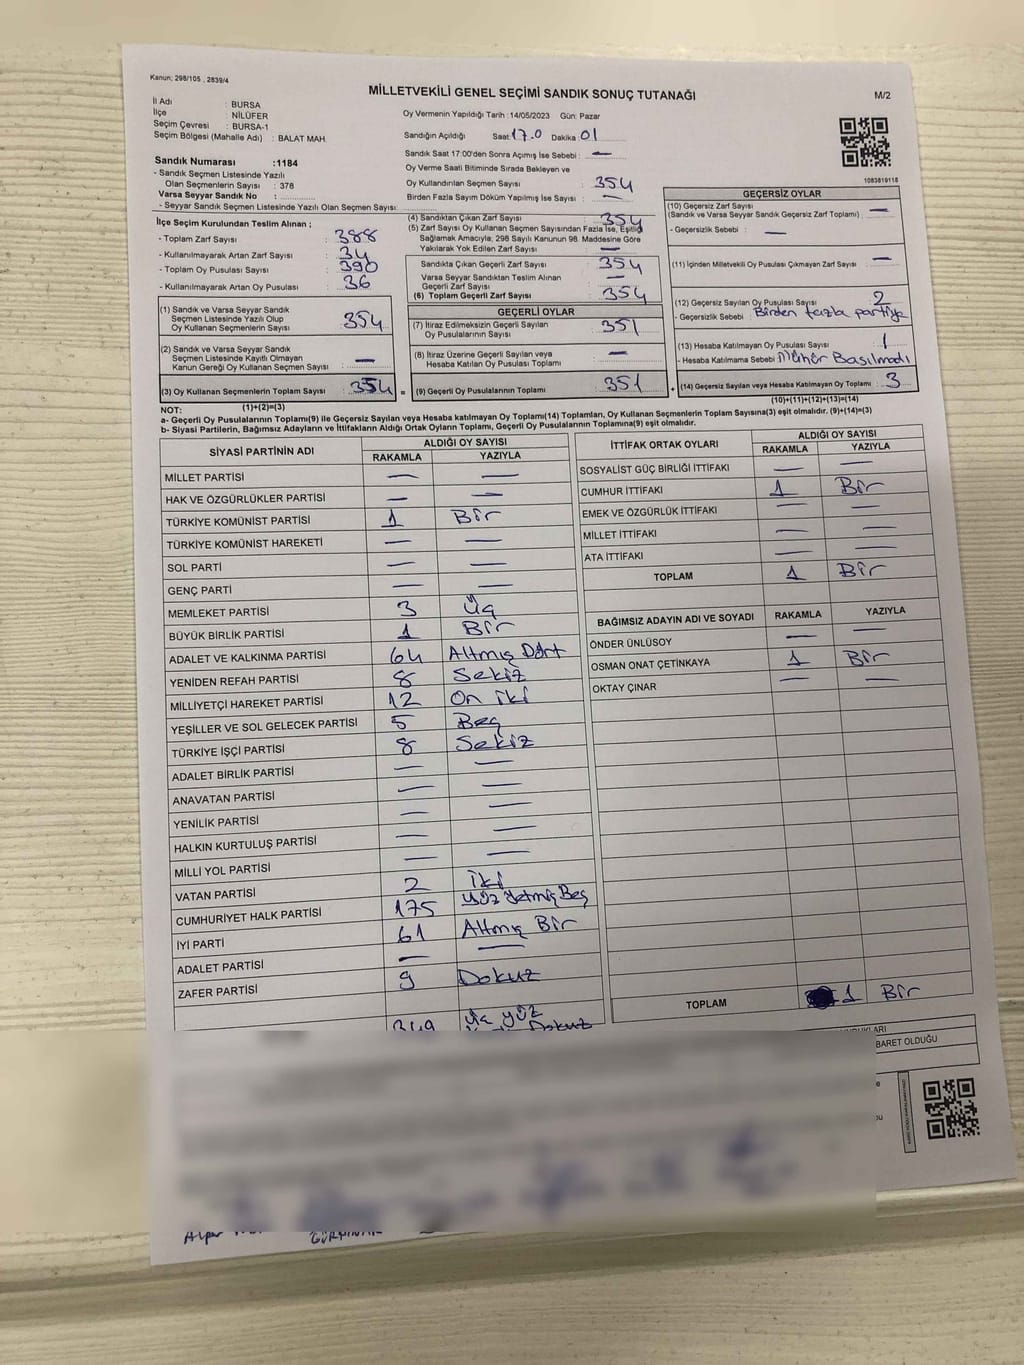 Kanun; 298/105 , 2839/4
MİLLETVEKİLİ GENEL SEÇİMİ SANDIK SONUÇ TUTANAĞI
M/2
İl Adı : BURSA
İlçe : NİLÜFER
Seçim Çevresi : BURSA-1
Seçim Bölgesi (Mahalle Adı) : BALAT MAH
Oy Vermenin Yapıldığı Tarih : 14/05/2023 Gün: Pazar
Sandığın Açıldığı Saat 17.0 Dakika 01
Sandık Saat 17:00'den Sonra Açımış İse Sebebi : —
Oy Verme Saati Bitiminde Sırada Bekleyen ve
Oy Kullandırılan Seçmen Sayısı : 354
Birden Fazla Sayım Döküm Yapılmış İse Sayısı : —
1083819118
Sandık Numarası :1184
- Sandık Seçmen Listesinde Yazılı
Olan Seçmenlerin Sayısı : 378
Varsa Seyyar Sandık No :
- Seyyar Sandık Seçmen Listesinde Yazılı Olan Seçmen Sayısı:
İlçe Seçim Kurulundan Teslim Alınan ;
- Toplam Zarf Sayısı : 388
- Kullanılmayarak Artan Zarf Sayısı : 34
- Toplam Oy Pusulası Sayısı : 390
- Kullanılmayarak Artan Oy Pusulası : 36
(1) Sandık ve Varsa Seyyar Sandık
Seçmen Listesinde Yazılı Olup
Oy Kullanan Seçmenlerin Sayısı : 354
(2) Sandık ve Varsa Seyyar Sandık
Seçmen Listesinde Kayıtlı Olmayan
Kanun Gereği Oy Kullanan Seçmen Sayısı : —
(3) Oy Kullanan Seçmenlerin Toplam Sayısı : 354 =
(1)+(2)=(3)
(4) Sandıktan Çıkan Zarf Sayısı : 354
(5) Zarf Sayısı Oy Kullanan Seçmen Sayısından Fazla İse, Eşitliği
Sağlamak Amacıyla, 298 Sayılı Kanunun 98. Maddesine Göre
Yakılarak Yok Edilen Zarf Sayısı : —
Sandıkta Çıkan Geçerli Zarf Sayısı : 354
Varsa Seyyar Sandıktan Teslim Alınan
Geçerli Zarf Sayısı : —
(6) Toplam Geçerli Zarf Sayısı : 354
GEÇERLİ OYLAR
(7) İtiraz Edilmeksizin Geçerli Sayılan
Oy Pusulalarının Sayısı : 351
(8) İtiraz Üzerine Geçerli Sayılan veya
Hesaba Katılan Oy Pusulası Toplamı : —
(9) Geçerli Oy Pusulalarının Toplamı : 351 +
GEÇERSİZ OYLAR
(10) Geçersiz Zarf Sayısı : —
(Sandık ve Varsa Seyyar Sandık Geçersiz Zarf Toplamı)
- Geçersizlik Sebebi : —
(11) İçinden Milletvekili Oy Pusulası Çıkmayan Zarf Sayısı : —
(12) Geçersiz Sayılan Oy Pusulası Sayısı : 2
- Geçersizlik Sebebi : Birden fazla partiye
(13) Hesaba Katılmayan Oy Pusulası Sayısı : 1
- Hesaba Katılmama Sebebi : Mühür Basılmadı
(14) Geçersiz Sayılan veya Hesaba Katılmayan Oy Toplamı : 3
(10)+(11)+(12)+(13)=(14)
NOT:
a- Geçerli Oy Pusulalarının Toplamı(9) ile Geçersiz Sayılan veya Hesaba katılmayan Oy Toplamı(14) Toplamları, Oy Kullanan Seçmenlerin Toplam Sayısına(3) eşit olmalıdır. (9)+(14)=(3)
b- Siyasi Partilerin, Bağımsız Adayların ve İttifakların Aldığı Ortak Oyların Toplamı, Geçerli Oy Pusulalarının Toplamına(9) eşit olmalıdır.
SİYASİ PARTİNİN ADI ALDIĞI OY SAYISI
RAKAMLA YAZIYLA
MİLLET PARTİSİ — —
HAK VE ÖZGÜRLÜKLER PARTİSİ — —
TÜRKİYE KOMÜNİST PARTİSİ 1 Bir
TÜRKİYE KOMÜNİST HAREKETİ — —
SOL PARTİ — —
GENÇ PARTİ — —
MEMLEKET PARTİSİ 3 Üç
BÜYÜK BİRLİK PARTİSİ 1 Bir
ADALET VE KALKINMA PARTİSİ 64 Altmış Dört
YENİDEN REFAH PARTİSİ 8 Sekiz
MİLLİYETÇİ HAREKET PARTİSİ 12 On iki
YEŞİLLER VE SOL GELECEK PARTİSİ 5 Beş
TÜRKİYE İŞÇİ PARTİSİ 8 Sekiz
ADALET BİRLİK PARTİSİ — —
ANAVATAN PARTİSİ — —
YENİLİK PARTİSİ — —
HALKIN KURTULUŞ PARTİSİ — —
MİLLİ YOL PARTİSİ — —
VATAN PARTİSİ 2 İki
CUMHURİYET HALK PARTİSİ 175 Yüz Yetmiş Beş
İYİ PARTİ 61 Altmış Bir
ADALET PARTİSİ — —
ZAFER PARTİSİ 9 Dokuz
349 Üç yüz
Dokuz
İTTİFAK ORTAK OYLARI ALDIĞI OY SAYISI
RAKAMLA YAZIYLA
SOSYALİST GÜÇ BİRLİĞİ İTTİFAKI — —
CUMHUR İTTİFAKI 1 Bir
EMEK VE ÖZGÜRLÜK İTTİFAKI — —
MİLLET İTTİFAKI — —
ATA İTTİFAKI — —
TOPLAM 1 Bir
BAĞIMSIZ ADAYIN ADI VE SOYADI RAKAMLA YAZIYLA
ÖNDER ÜNLÜSOY — —
OSMAN ONAT ÇETİNKAYA 1 Bir
OKTAY ÇINAR — —
TOPLAM 1 Bir
BARET OLDUĞU
Alper